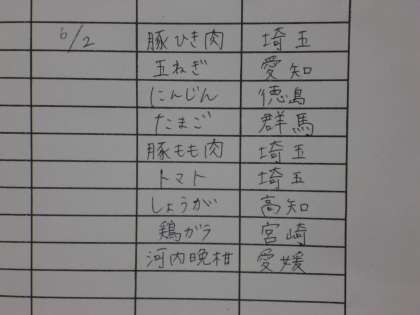 6/2 豚ひき肉 埼玉
玉ねぎ 愛知
にんじん 徳島
たまご 群馬
豚もも肉 埼玉
トマト 埼玉
しょうが 高知
鶏ガラ 宮崎
河内晩柑 愛媛